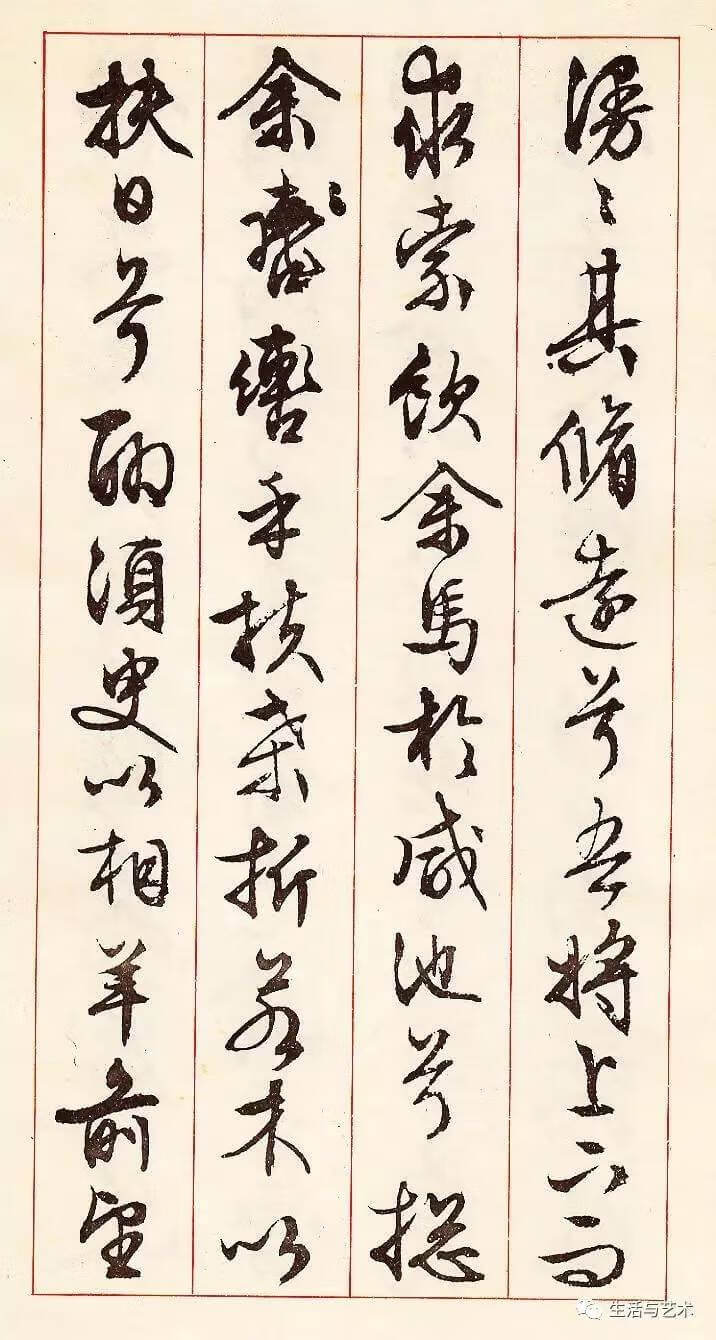 漫〻其脩遠兮吾將上下而
求索飲余馬於咸池兮揔
余轡乎扶桑折若木以
扶日兮聊須臾以相羊前望
生活与艺术